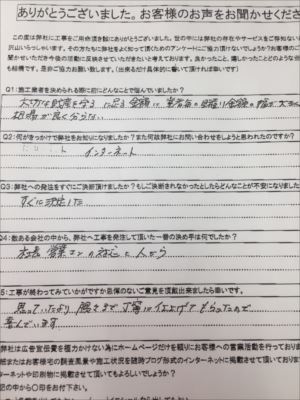 ありがとうございました。お客様のお声をお聞かせくださ
この度は弊社に工事をご用命頂き誠にありがとうございました。世の中には弊社の存在やサービスをご存知ない
沢山いらっしゃいます。その方たちにも弊社をよく知って頂くためのアンケートにご協力頂けないでしょうか？お客様のご
聞かせいただき今後の活動に反映させていただきたいと考えております。良かったこと、嬉しかったことどのような
も結構です。是非ご協力お願い致します。（出来るだけ具体的に書いて頂ければ幸いです）
Q1:施工業者を決められる際に前にどんなことで悩んでいましたか？
大切な財産を守るに足る金額に業者毎の見積り金額の幅が大きく
相場が良く分らない
Q2:何がきっかけで弊社をお知りになりましたか？また何故弊社にお問い合わせをしようと思われたのですか？
インターネット
Q3:弊社への発注をすぐにご決断頂けましたか？もしご決断されなかったとしたらどんなことが不安になりました
すぐに決定した
Q4:数ある会社の中から、弊社へ工事を発注して頂いた一番の決め手は何でしたか？
社長、営業マンの対応と人がら
5:工事が終わってみていかがですか忌憚のないご意見を頂戴出来ましたら幸いです。
思っていたより隅々まで丁寧に仕上げてもらったので
喜んでいます
弊社は広告宣伝費を極力かけない為にホームページだけを頼りにお客様への営業活動を行っており
紙またはお客様宅の調査風景や施工状況を随時ブログ形式のインターネットに掲載させて頂いており
ターネットや印刷物に掲載させて頂いてもよろしいでしょうか？
記の中から〇印をお付け下さい。